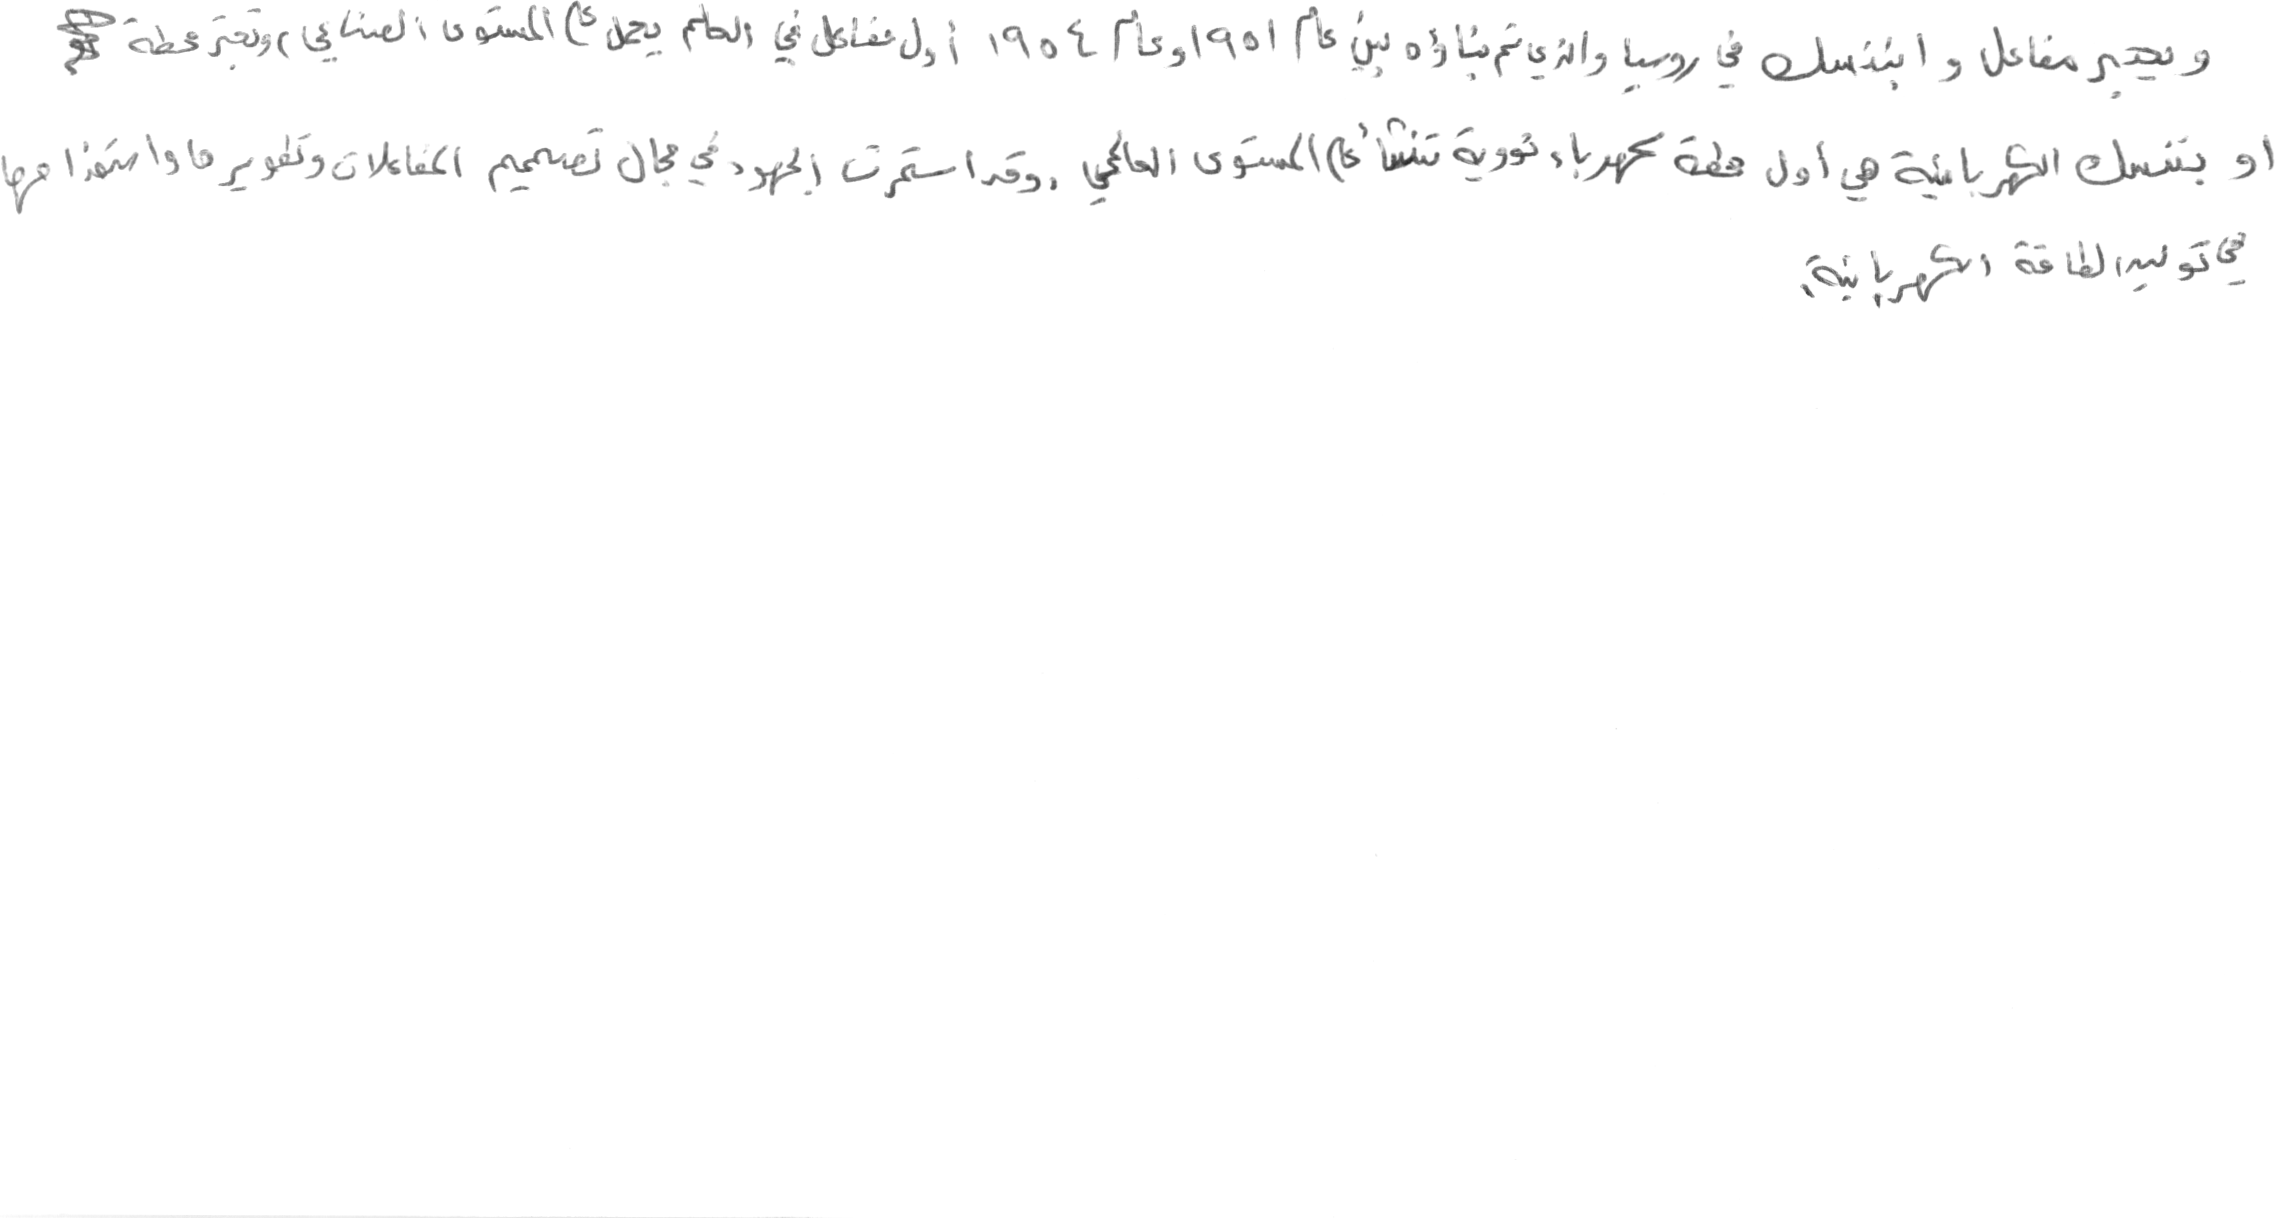 ويعتبر مفاعل وابننسك في روسيا والذي تم بناؤه بين عام ١٩٥١ وعام ١٩٥٤ أول مفاعل في العالم يعمل على المستوى الصناعي، وتعتبر محطة
اوبننسك الكهربائية هي أول محطة كهرباء نووية تنشأ على المستوى العالمي. وقد استمرت الجهود في مجال تصميم المفاعلات وتطويرها واستخدامها
في توليد الطاقة الكهربائية.